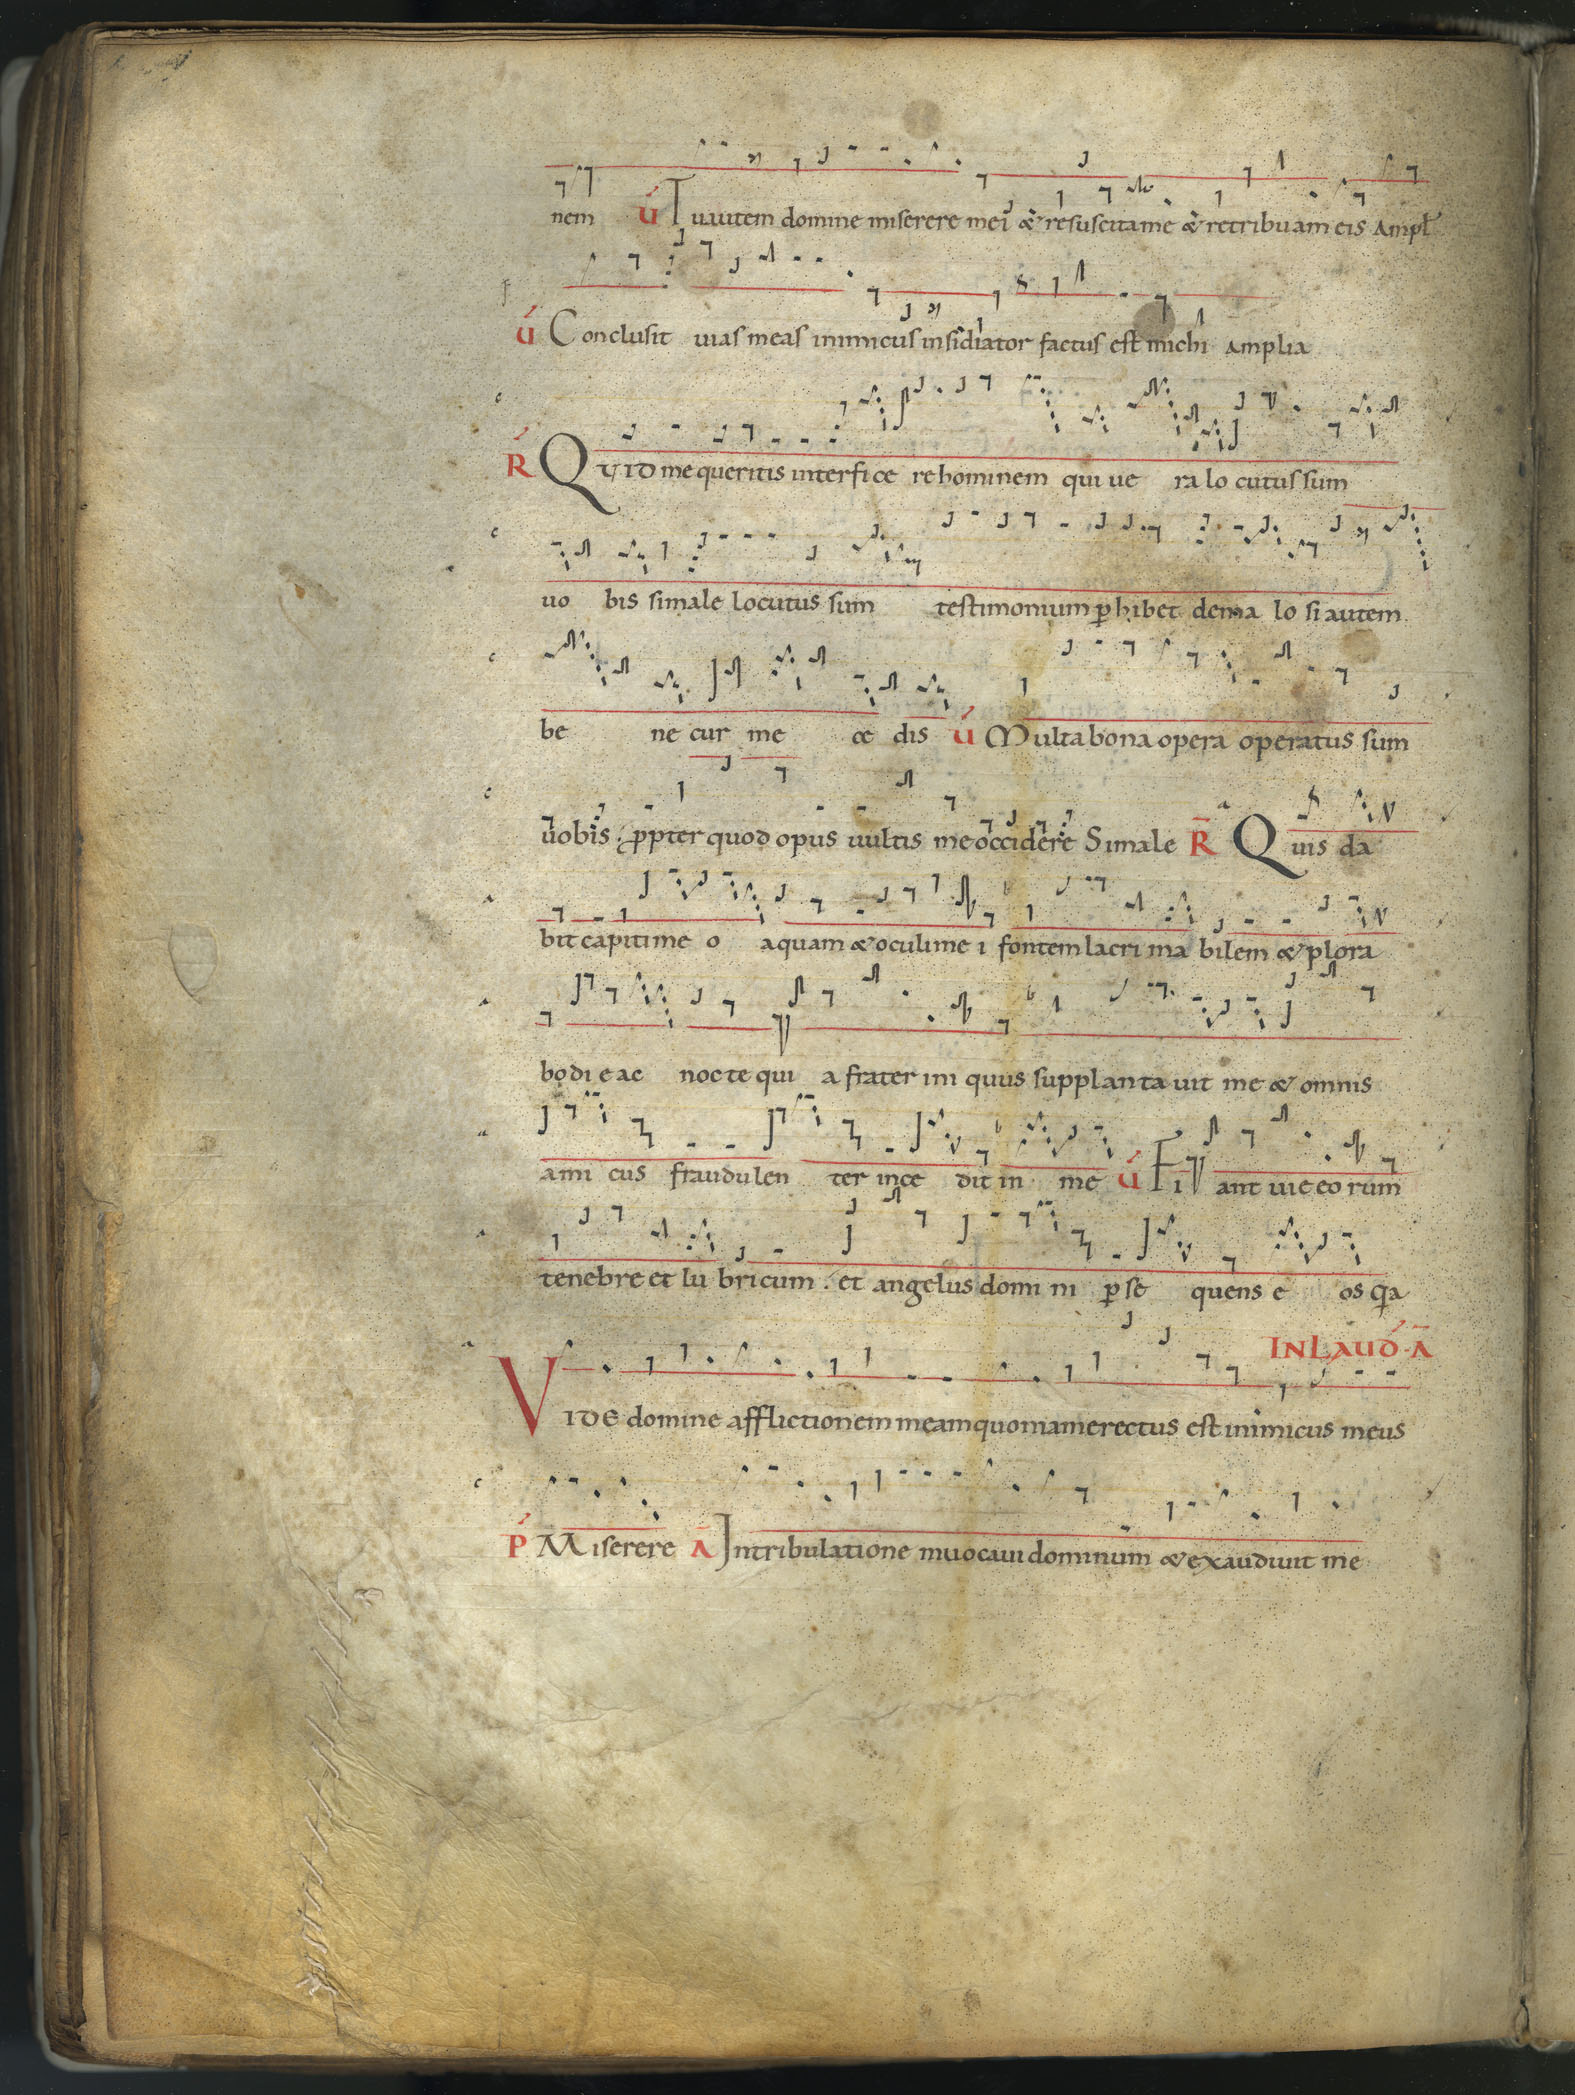 nem V́ Tu autem domine miserere mei & resuscita me & retribuam eis Ampl̄
V́ Conclusit uias meas inimicus insidiator factus est michi Amplia
R̄ QVID me queritis interfice re hominem qui ue ra lo cutus sum
uo bis si male locutus sum testimonium phibet de ma lo si autem
be ne cur me ce dis V́ Multa bona opera operatus sum
uobis. ppter quod opus uultis me occidere Si male R̄ Quis da
bit capiti me o aquam & oculi me i fontem lacri ma bilem & plora
bo di e ac nocte qui a frater ini quus supplanta uit me & omnis
ami cus fraudulen ter ince dit in me V́ Fi ant uie eo rum
tenebre et lu bricum. et angelus domi ni pse quens e os Q̄a
IN LAUD́ Ā
VIDE domine afflictionem meam quoniam erectus est inimicus meus
Ṕ Miserere Ā In tribulatione inuocaui dominum & exaudiuit me